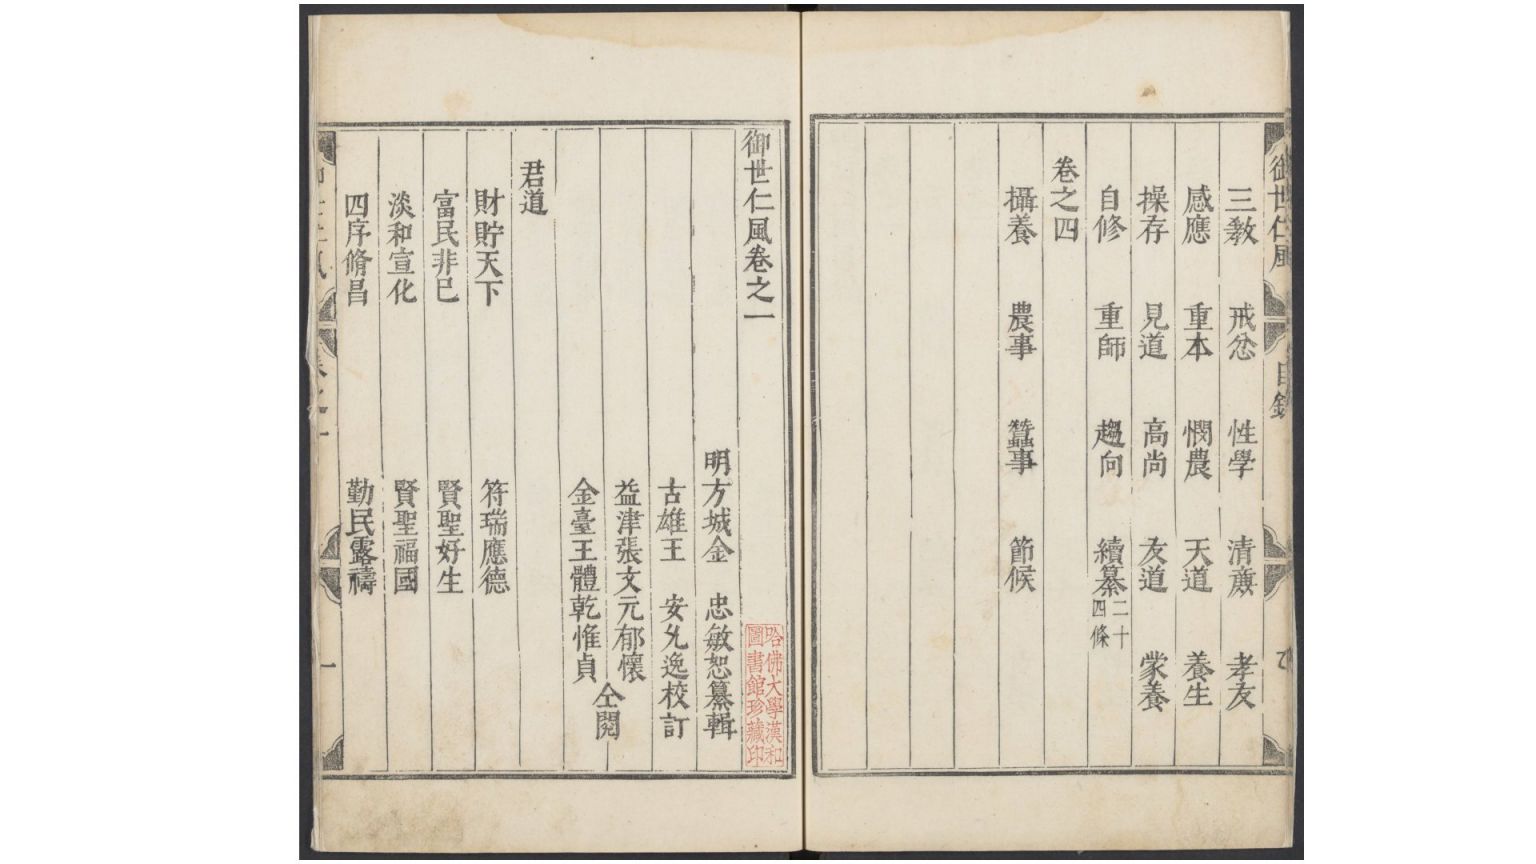 御世仁風
目錄
三教 戒忿 性學 清廉 孝友
感應 重本 憫農 天道 養生
操存 見道 高尚 友道 蒙養
自修 重師 趨向 續纂二十四條
卷之四
攝養 農事 蠶事 節候
御世仁風卷之一
明方城金 忠敏恕纂輯
古雄王 安允逸校訂
益津張文元郁懷
金臺王體乾惟貞
仝閱
君道
財貯天下 符瑞應德
富民非已 賢聖好生
淡和宣化 賢聖福國
四序脩昌 勤民露禱
一
哈佛大學漢和
圖書館珍藏印